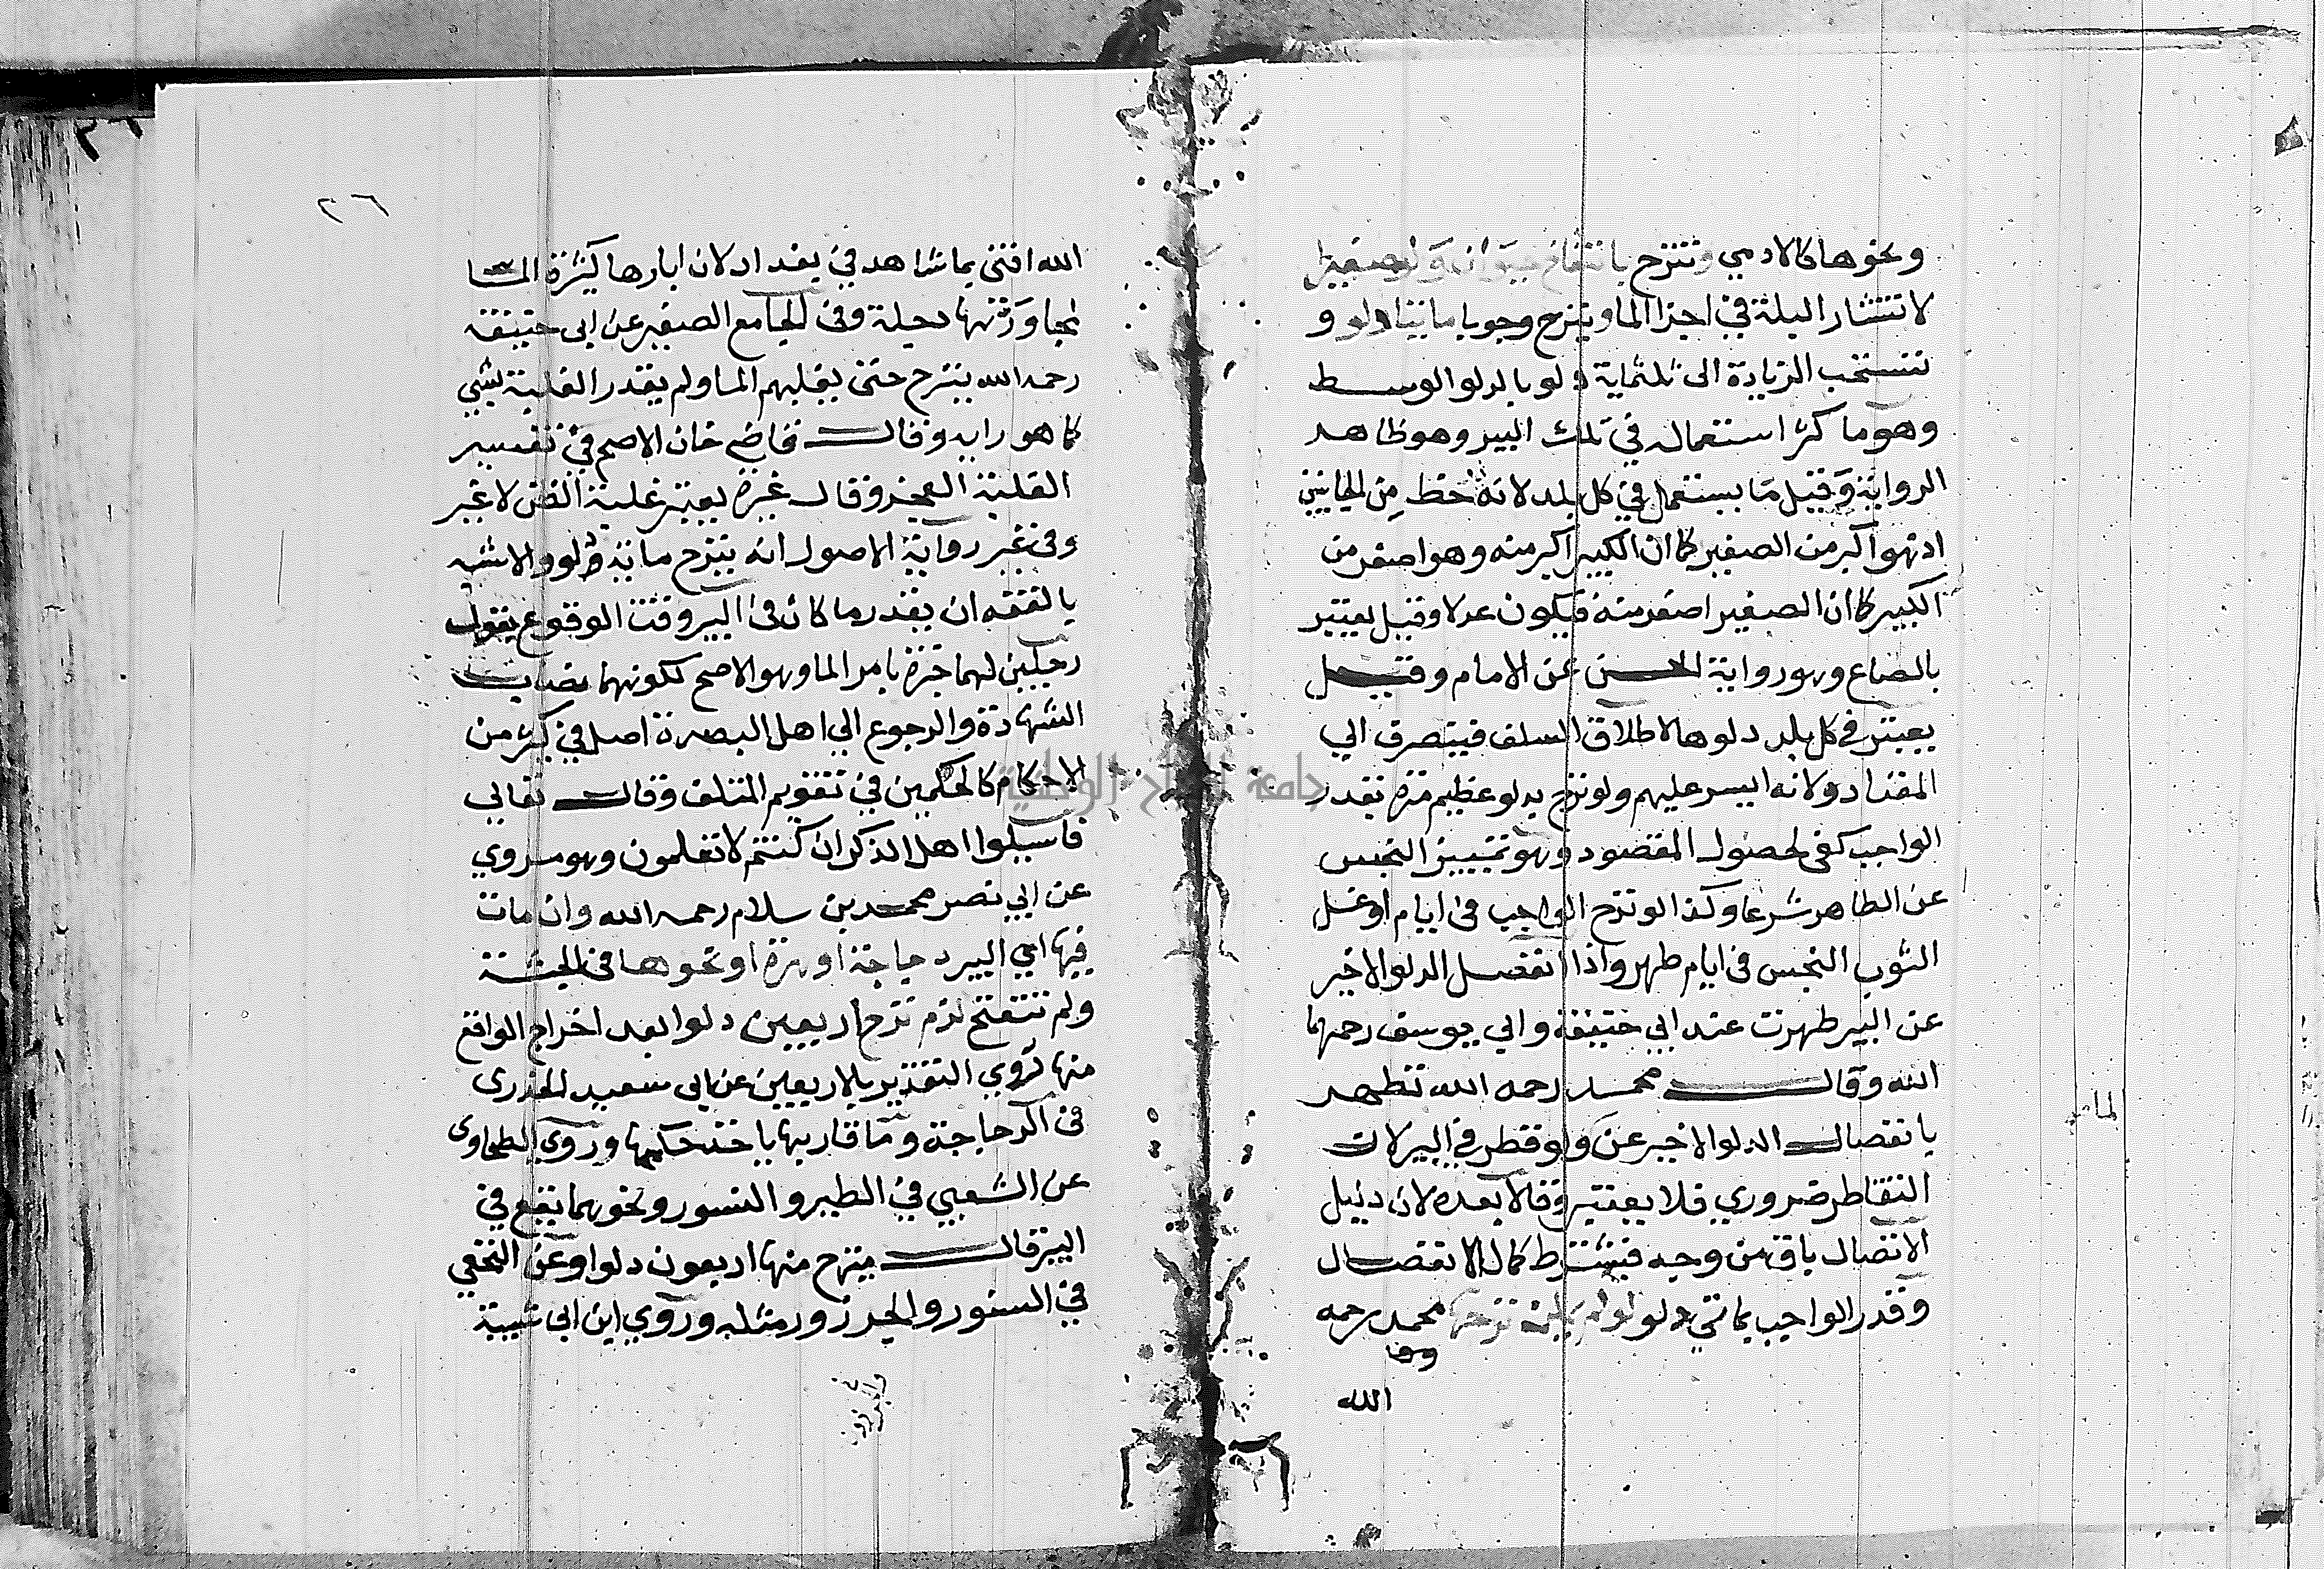 ونحوها كالادمي وتنزح بانتفاخ حيوان ولو صغيرا
لانتشار البلة في اجزا الما وينزح وجوبا مايتا دلو و
تستحب الزيادة الى ثلثماية دلو بالدلو الوسط
وهو ما كثر استعماله في تلك البير وهو ظاهر
الرواية وقيل ما يستعمل في كل بلد لانه احط من الجانبين
اذ هو اكبر من الصغير كما ان الكبير اكبر منه وهو اصغر من
الكبير كما ان الصغير اصغر منه فيكون عدلا وقيل يعتبر
بالصاع وهو رواية الحسن عن الامام وقيل
يعتبر في كل بلد دلوها لاطلاق السلف فيتصرف الي
المعتاد ولانه ايسر عليهم ولو نزح بدلو عظيم مرة بقدر
الواجب كفى لحصول المقصود وهو تمييز النجس
عن الطاهر شرعا وكذا لو نزح الواجب في ايام او غسل
الثوب النجس في ايام طهر واذا انفصل الدلو الاخير
عن البير طهرت عند ابي حنيفة وابي يوسف رحمهما
الله وقال محمد رحمه الله تطهر
بانفصال الدلو الاخير عن ولو قطر في البير لان
الما
التقاطر ضروري فلا يعتبر وقالا بعده لان دليل
الاتصال باق من وجه فيشترط كمال الانفصال
وقدر الواجب بمايتي دلو لو لم يمكن نزحها محمد رحمه
الله
٢٦
الله افتى بما شاهد في بغداد لان ابارها كثيرة الما
لمجاورتها دجلة وفي الجامع الصغير عن ابي حنيفة
رحمه الله ينزح حتى يغلبهم الما ولم يقدر الغلبة بشي
كما هو رايه وقال قاضي خان الاصح في تفسير
الغلبة العجز وقال غيره يعتبر غلبة الظن لا غير
وفي غير رواية الاصول انه ينزح ماية دلو والاشبه
بالفقه ان يقدر ما كان في البير وقت الوقوع بقول
رجلين لهما خبرة بامر الما وهو الاصح لكونهما نصاب
الشهادة والرجوع الي اهل البصرة اصل في كثير من
الاحكام كالحكمين في تقويم المتلف وقال تعالي
فاسيلوا اهل الذكر ان كنتم لا تعلمون وهو مروي
عن ابي نصر محمد بن سلام رحمه الله وان مات
فيها اي البير دجاجة او هرة او نحوها في الجثة
ولم تنتفخ لزم نزح اربعين دلوا بعد اخراج الواقع
منها لروي التقدير بالاربعين عن ابي سعيد الخدري
في الدجاجة وما قاربها ياخذ حكمها وروي الطحاوى
عن الشعبي في الطير والسنور ونحوهما يقع في
البير قال ينزح منها اربعون دلوا وعن النخعي
في السنور والجرذ ور مثله وروي ابن ابي شيبة
جامعة النجاح الوطنية